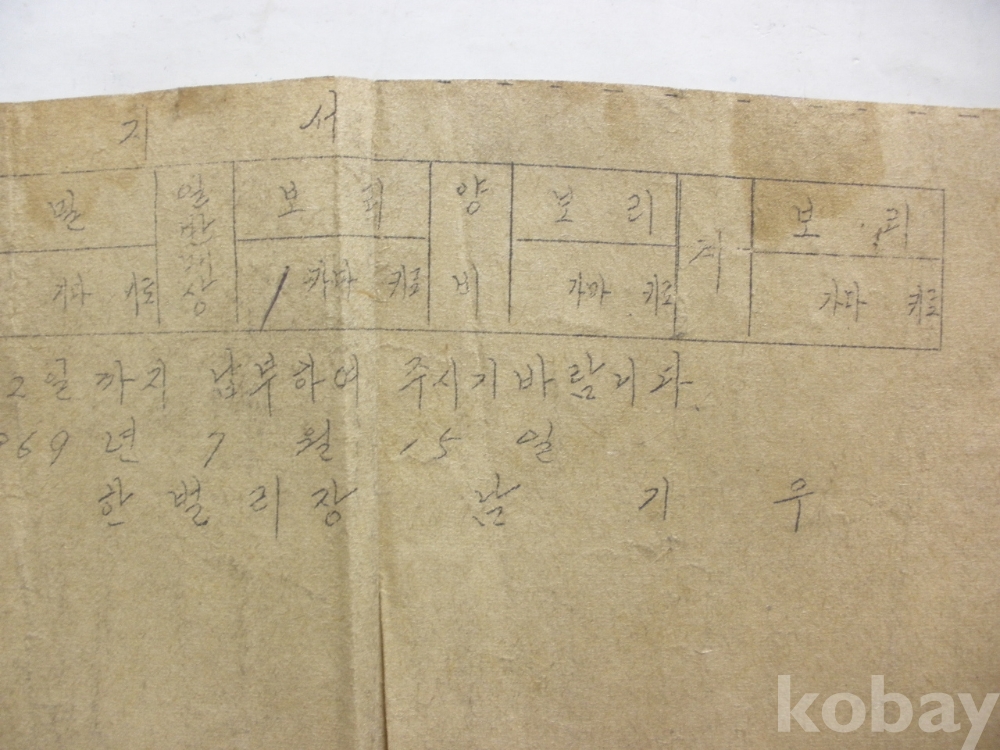 지 서
밀 일반대상 보리 양비 보리 계 보리
가마 키로 / 가마 키로 가마 키로 가마 키로
2일까지 납부하여 주시기바랍니다.
969년 7월 15일
한벌리장 남기우
kobay